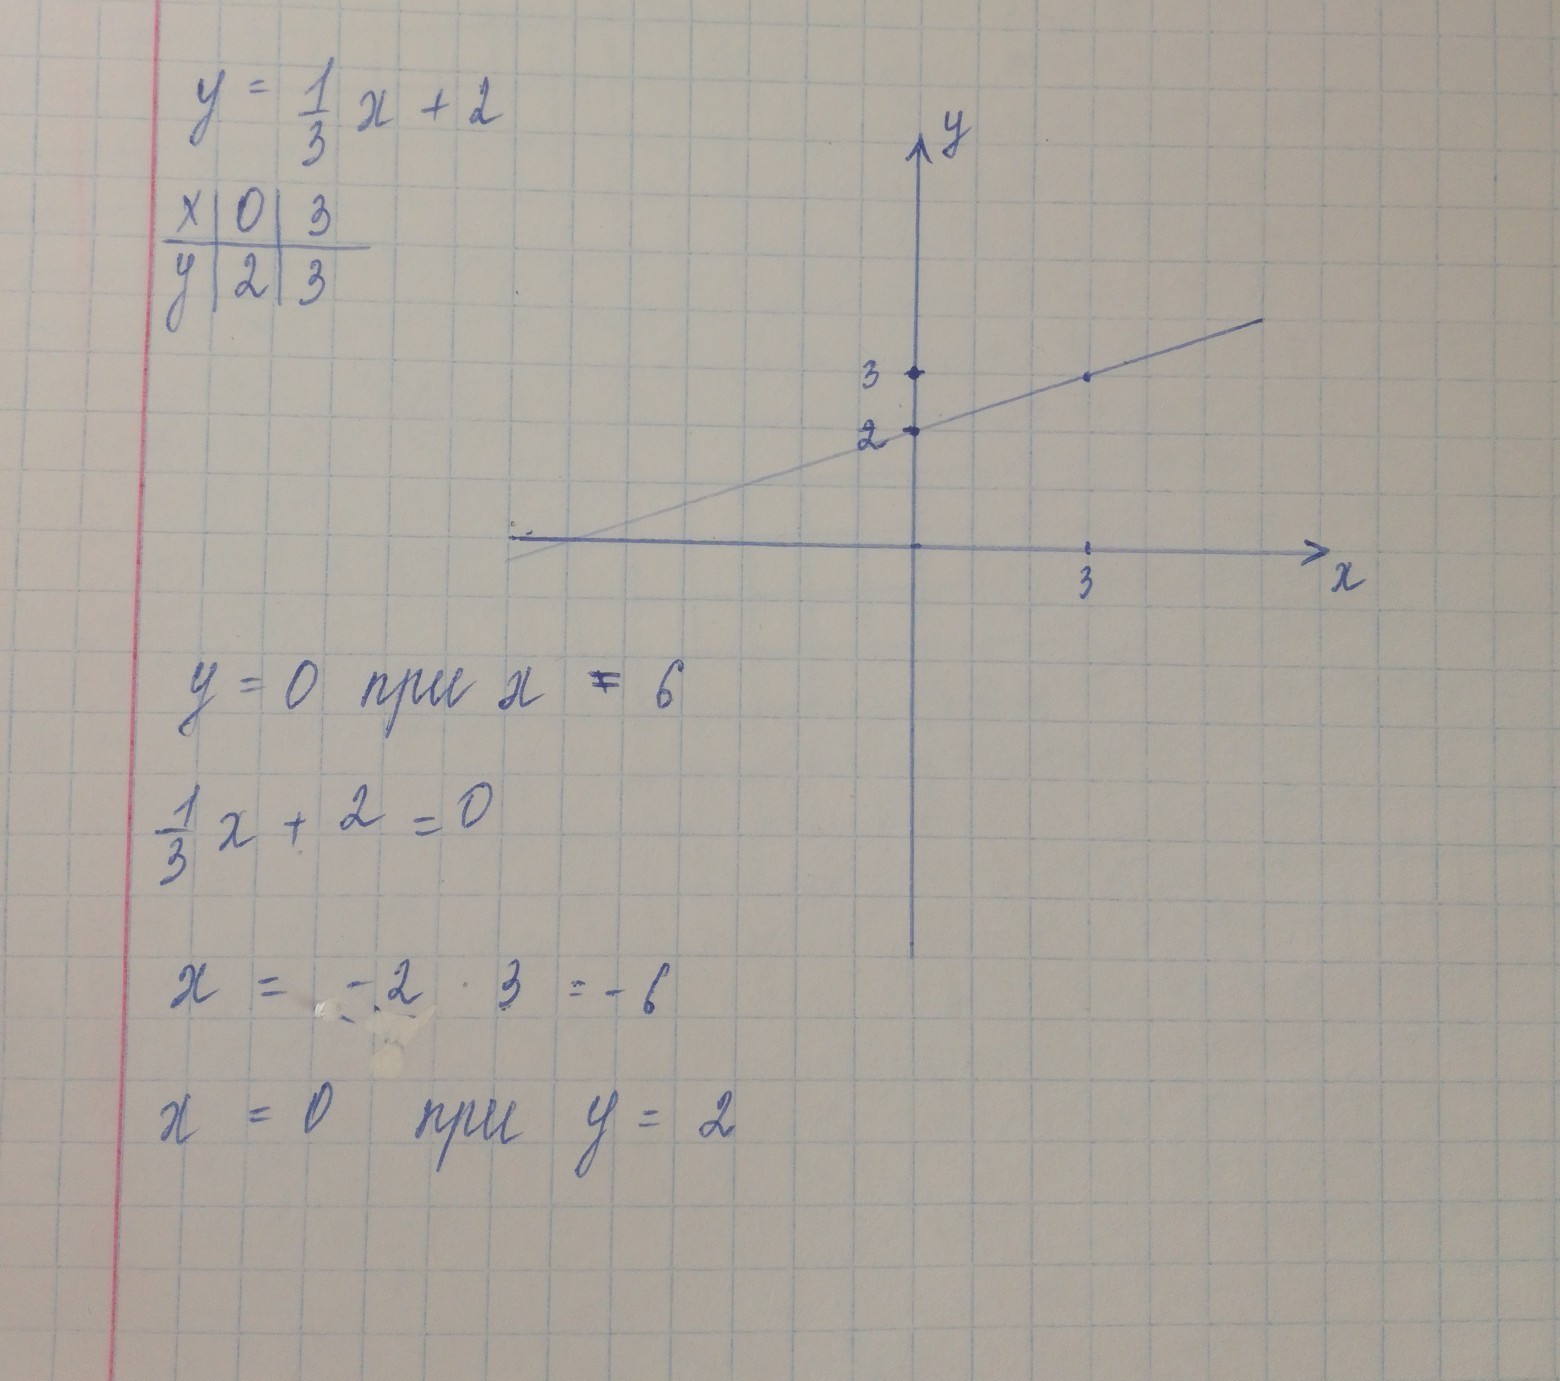 y = 1/3 x + 2
x | 0 | 3
y | 2 | 3
y
3
2
3
x
y = 0 при x = 6
1/3 x + 2 = 0
x = -2 · 3 = -6
x = 0 при y = 2